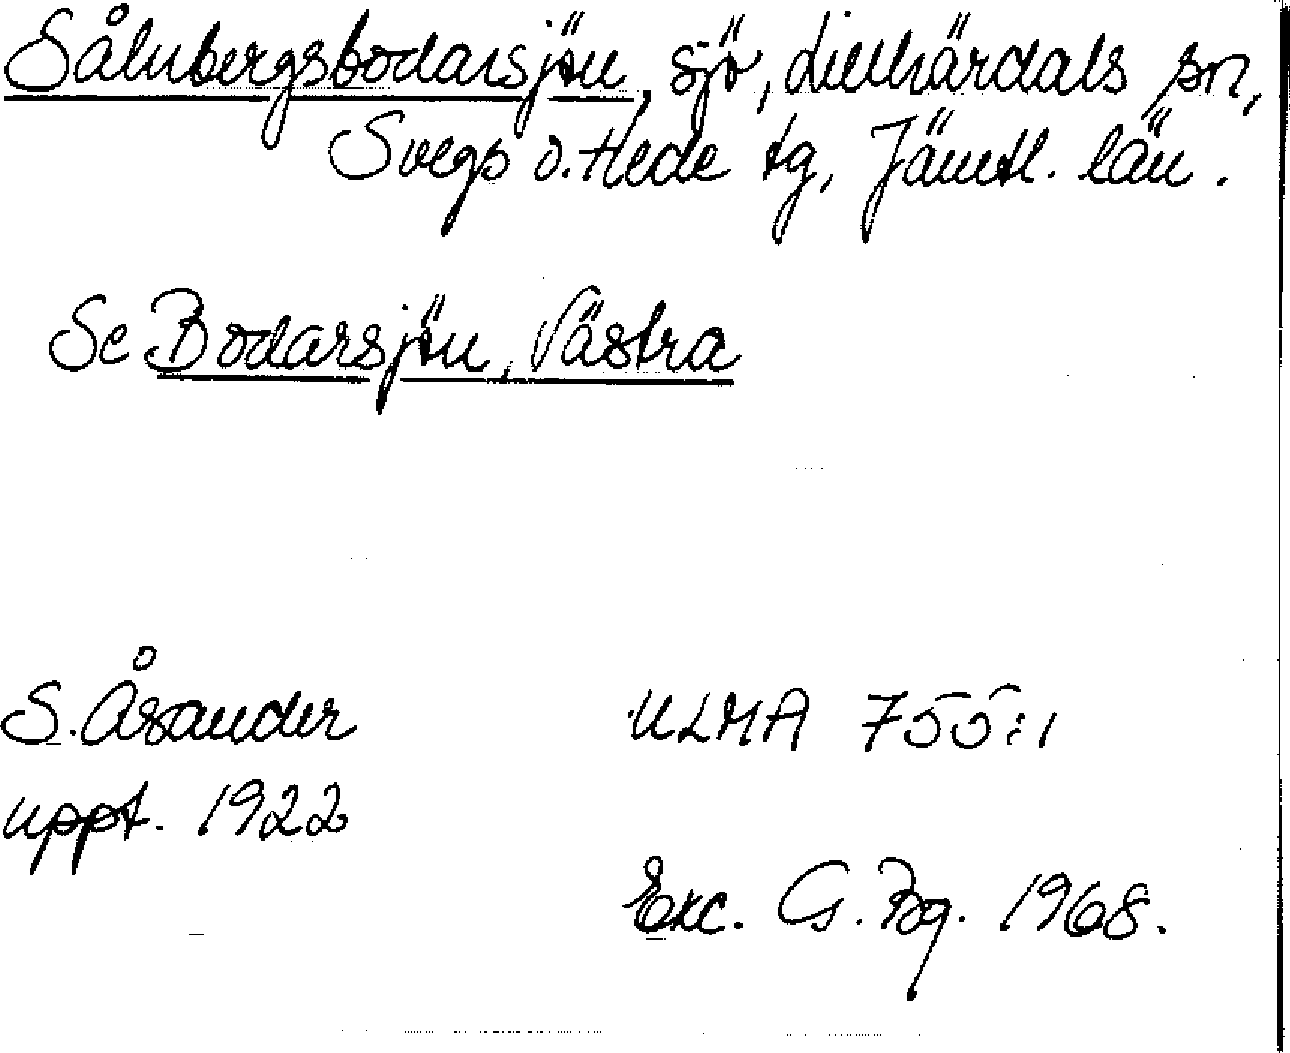 Sålnbergsbodarsjön, sjö, Lillhärdals sn,
Svegs o. Hede tg, Jämtl. län.
Se Bodarsjön, Västra
S. Åsander
uppt. 1922
ULMA 755:1
Exc. G. Bg. 1968.